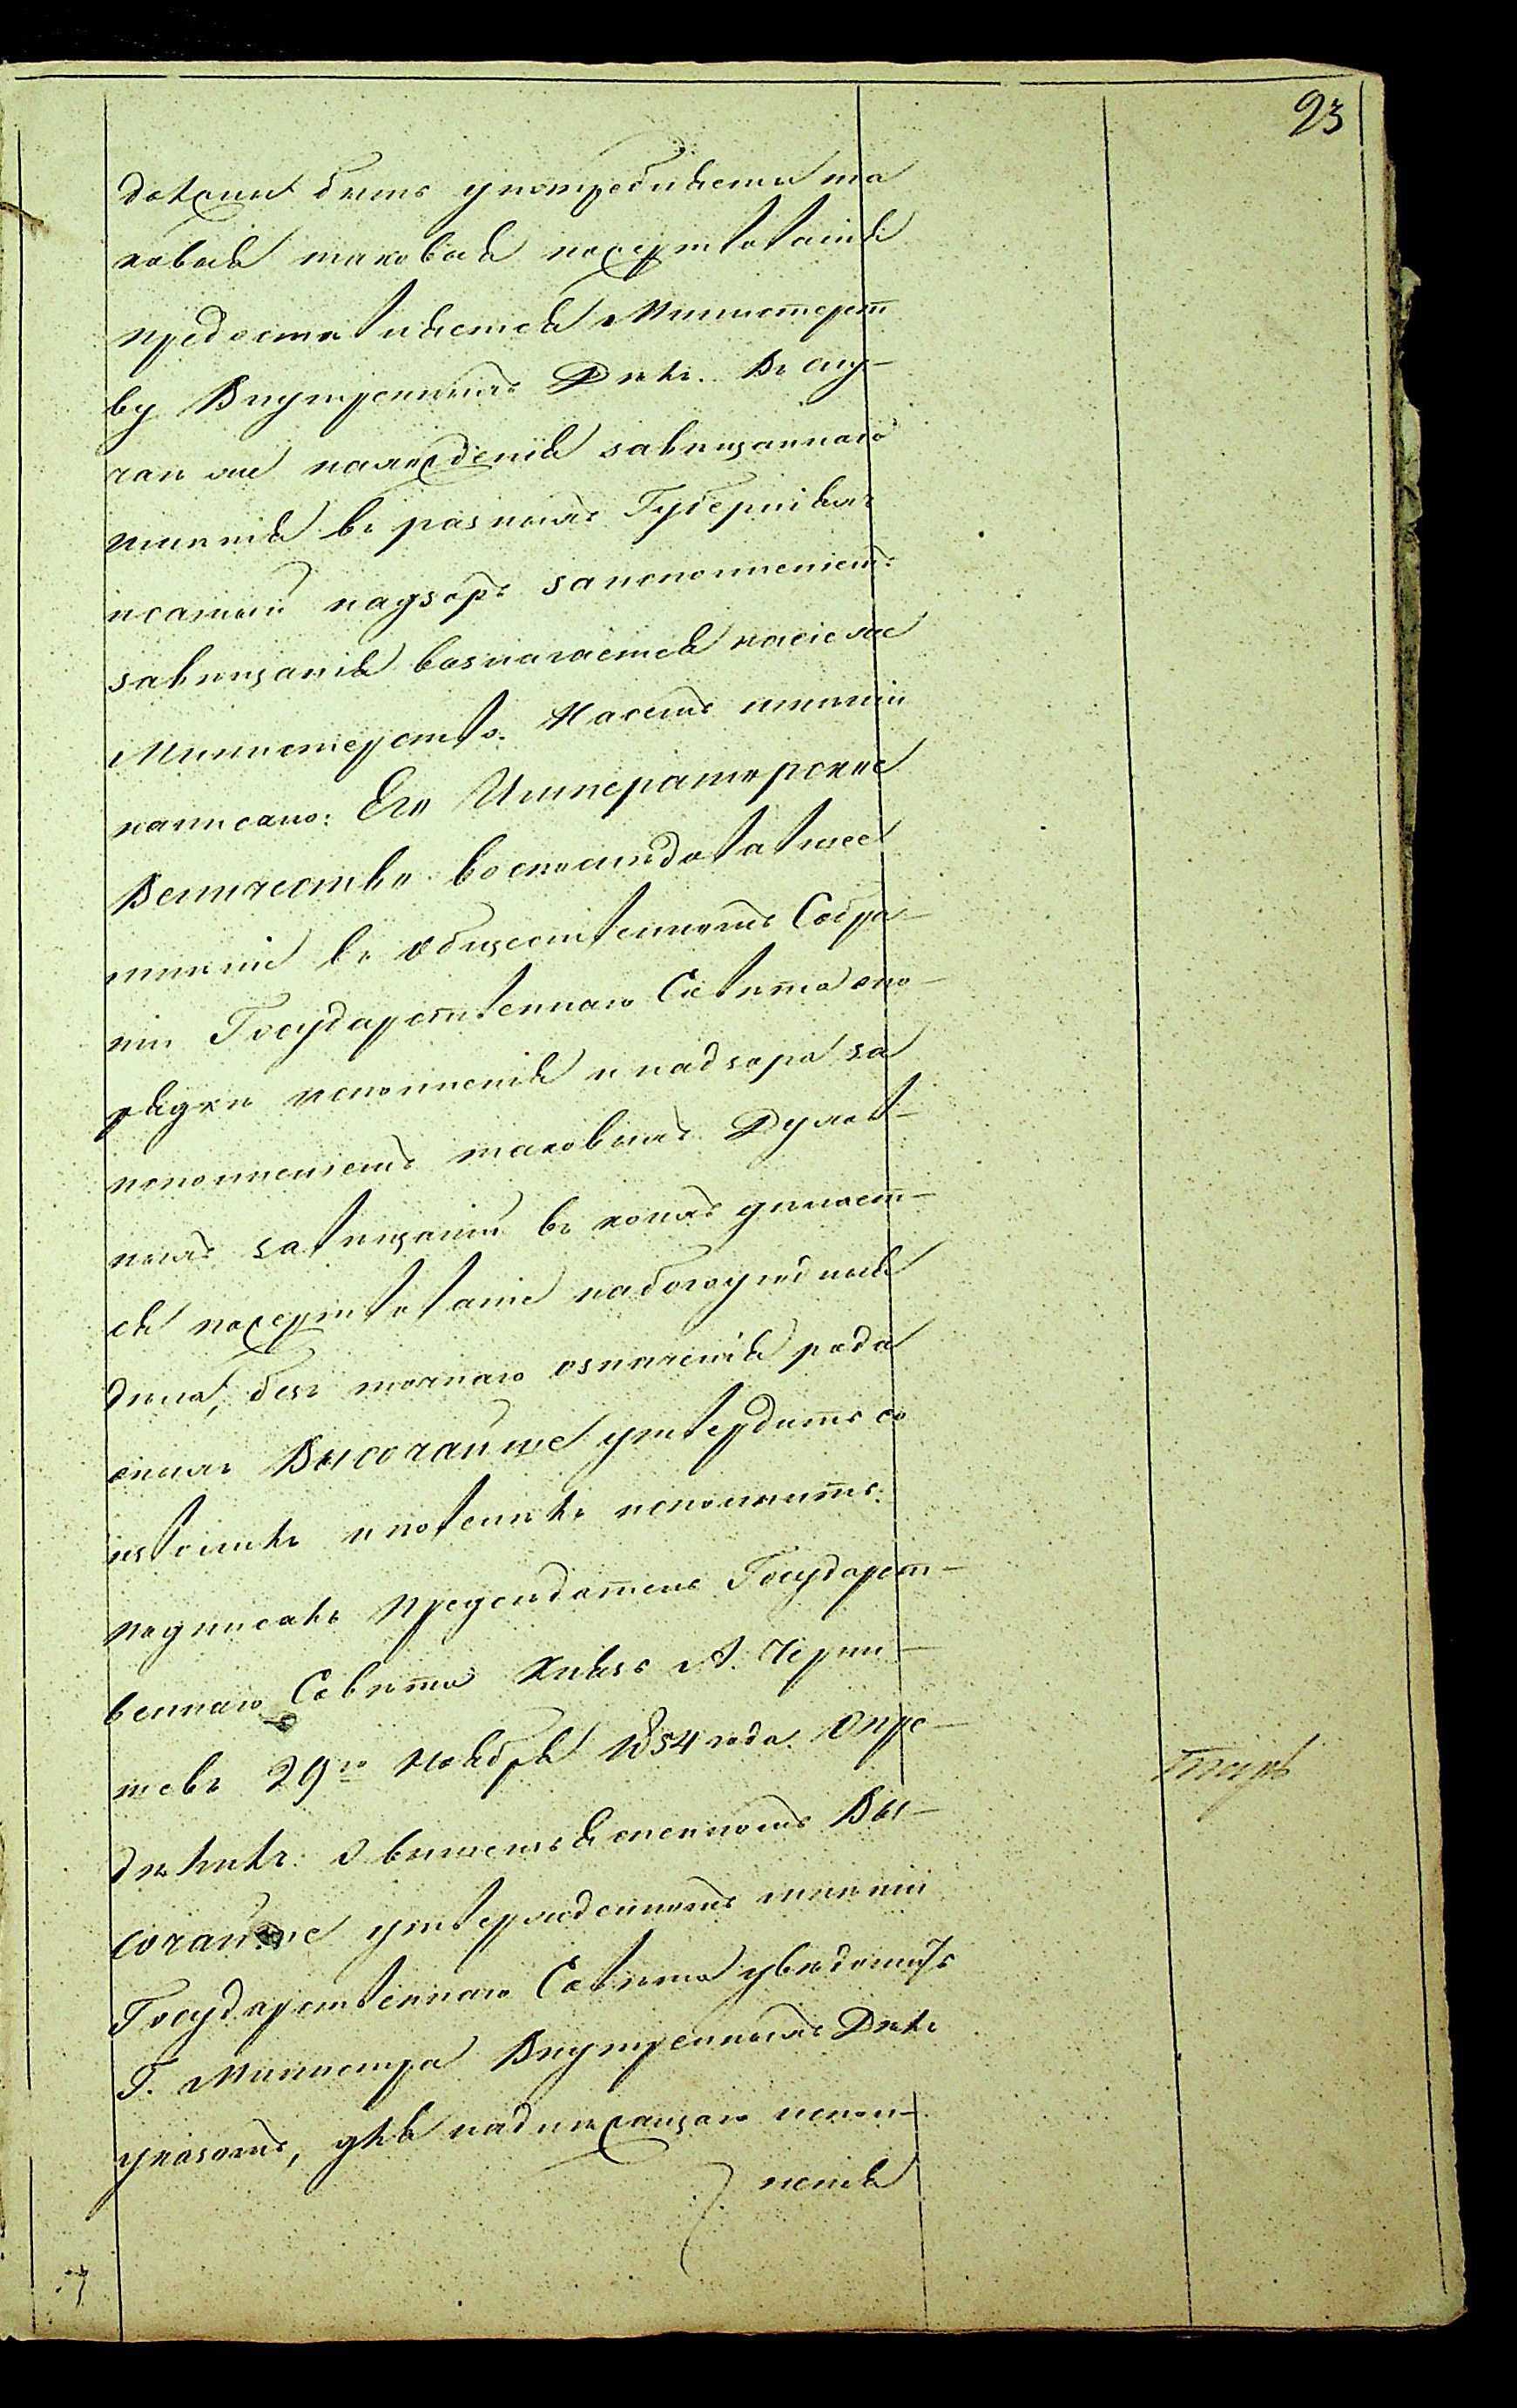 23
долженъ быть употребляемы та
ковыя таковыя пожертвованія
предоставляется Министерст
ву Внутреннихъ Дѣлъ. Въ слу-
чаи же нахожденія завѣщаннаго
имѣнія въ разныхъ Губерніяхъ
и самый надзоръ за исполненіемъ
завѣщанія возлагается на сіе же
Министерство. На семъ мнѣніи
написано: Его Императорское
Величество воспослѣдовавшее
мнѣніе въ Общественномъ Собра-
ніи Государственнаго Совѣта о по-
рядкѣ исполненія и надзора за
исполненіемъ таковыхъ Духов-
ныхъ завѣщаній въ коихъ дѣлает-
ся пожертвованіе на богоугодныя
дѣла, безъ точнаго означенія рода
оныхъ Высочайше утвердить со
изволилъ и повелѣлъ исполнить.
Подписалъ Предсѣдатель Государст-
веннаго Совѣта Князь А. Черны-
шевъ 29го Ноября 1854 года. Опре-
дѣлилъ: О вышеизъясненномъ Вы-
сочайше утвержденномъ мнѣніи
Государственнаго Совѣта увѣдомить
Г. Министра Внутреннихъ Дѣлъ
указомъ, для надлежащаго испол-
ненія